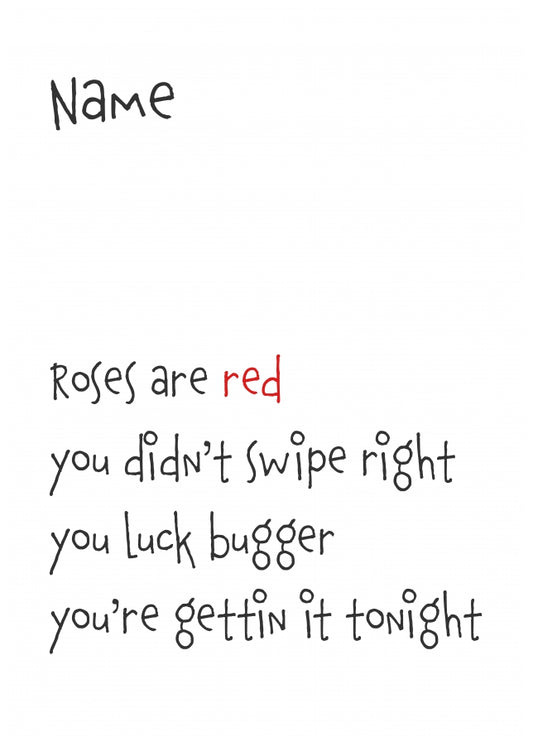 Name
Roses are red
you didn't swipe right
you luck bugger
you're gettin it tonight